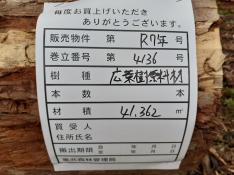 毎度お買上げいただき
ありがとうございます。
販売物件 第 R7年 号
巻立番号 第 4136 号
樹種 広葉樹燃料材
本数 本
材積 41.362 m³
買受人
住所氏名
搬出期限 年 月 日
森林管理局